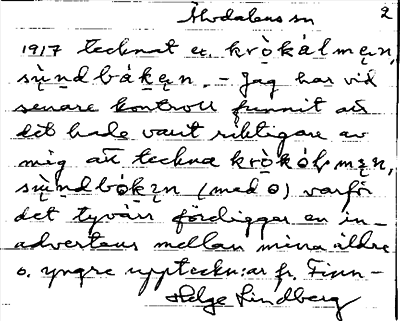 Älvdalens sn 2
1917 tecknat ex. krò̩kálmęn,
sų̀ndbákęn. – Jag har vid
senare kontroll funnit att
det hade varit riktigare av
mig att teckna krò̩kólmęn,
sų̀ndbókęn (med o) varför
det tyvärr föreligger en in-
advertens mellan mina äldre
o. yngre uppteckn:ar fr. Finn-
Helge Lindberg